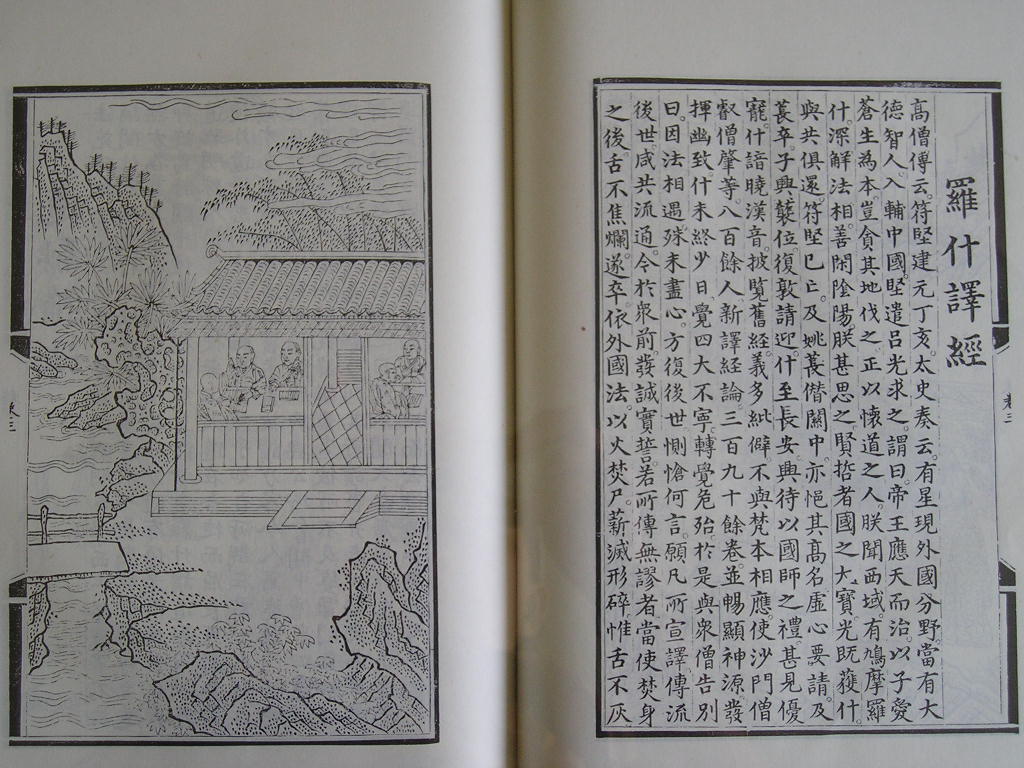 羅什譯經
高僧傳云。符堅建元丁亥。太史奏云。有星現外國分野。當有大
德智人。入輔中國。堅遣呂光求之。謂曰。帝王應天而治。以子愛
蒼生為本。豈貪其地伐之。正以懷道之人。朕聞西域有鳩摩羅
什。深解法相。善閑陰陽。朕甚思之。賢哲者國之大寶。光既獲什。
與共俱還。符堅已亡。及姚萇僭關中。亦挹其高名。虛心要請。及
萇卒。子興襲位。復敦請迎什至長安。興待以國師之禮。甚見優
寵。什諳曉漢音。披覽舊經。義多紕僻。不與梵本相應。使沙門僧
叡僧肇等。八百餘人。新譯經論三百九十餘卷。並暢顯神源。發
揮幽致。什未終少日。覺四大不寧。轉覺危殆。於是與眾僧告別
曰。因法相遇。殊未盡心。方復後世。惻愴何言。願凡所宣譯。傳流
後世。咸共流通。今於眾前。發誠實誓。若所傳無謬者。當使焚身
之後。舌不焦爛。遂卒。依外國法。以火焚尸。薪滅形碎。惟舌不灰
卷三